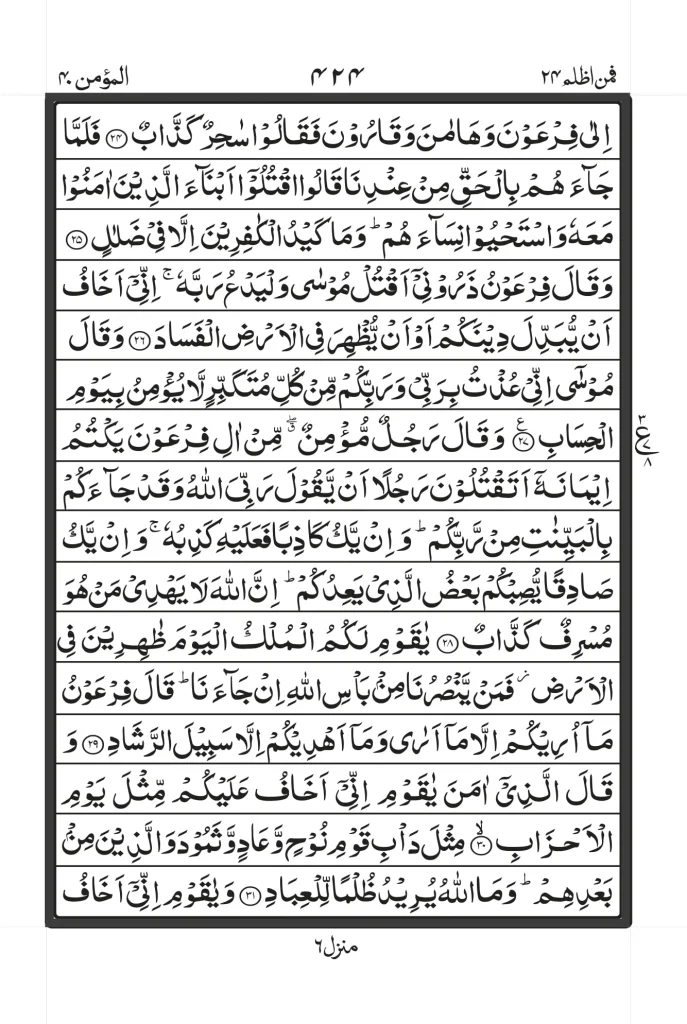 فمن اظلم ۲۴ ۴۲۴ المؤمن ۴۰
اِلٰی فِرْعَوْنَ وَهَامٰنَ وَقَارُوْنَ فَقَالُوْا سٰحِرٌ كَذَّابٌ ﴿۲۴﴾ فَلَمَّا
جَآءَهُمْ بِالْحَقِّ مِنْ عِنْدِنَا قَالُوا اقْتُلُوْۤا اَبْنَآءَ الَّذِيْنَ اٰمَنُوْا
مَعَهٗ وَاسْتَحْيُوْا نِسَآءَهُمْ ؕ وَمَا كَيْدُ الْكٰفِرِيْنَ اِلَّا فِيْ ضَلٰلٍ ﴿۲۵﴾
وَقَالَ فِرْعَوْنُ ذَرُوْنِيْۤ اَقْتُلْ مُوْسٰى وَلْيَدْعُ رَبَّهٗ ۚ اِنِّيْۤ اَخَافُ
اَنْ يُّبَدِّلَ دِيْنَكُمْ اَوْ اَنْ يُّظْهِرَ فِي الْاَرْضِ الْفَسَادَ ﴿۲۶﴾ وَقَالَ
مُوْسٰۤى اِنِّيْ عُذْتُ بِرَبِّيْ وَرَبِّكُمْ مِّنْ كُلِّ مُتَكَبِّرٍ لَّا يُؤْمِنُ بِيَوْمِ
الْحِسَابِ ﴿۲۷﴾ ع وَقَالَ رَجُلٌ مُّؤْمِنٌ ۖۗ مِّنْ اٰلِ فِرْعَوْنَ يَكْتُمُ
۳
ع ۷
۸
اِيْمَانَهٗۤ اَتَقْتُلُوْنَ رَجُلًا اَنْ يَّقُوْلَ رَبِّيَ اللّٰهُ وَقَدْ جَآءَكُمْ
بِالْبَيِّنٰتِ مِنْ رَّبِّكُمْ ؕ وَاِنْ يَّكُ كَاذِبًا فَعَلَيْهِ كَذِبُهٗ ۚ وَاِنْ يَّكُ
صَادِقًا يُّصِبْكُمْ بَعْضُ الَّذِيْ يَعِدُكُمْ ؕ اِنَّ اللّٰهَ لَا يَهْدِيْ مَنْ هُوَ
مُسْرِفٌ كَذَّابٌ ﴿۲۸﴾ يٰقَوْمِ لَكُمُ الْمُلْكُ الْيَوْمَ ظٰهِرِيْنَ فِي
الْاَرْضِ ؗ فَمَنْ يَّنْصُرُنَا مِنْۢ بَاْسِ اللّٰهِ اِنْ جَآءَنَا ؕ قَالَ فِرْعَوْنُ
مَاۤ اُرِيْكُمْ اِلَّا مَاۤ اَرٰى وَمَاۤ اَهْدِيْكُمْ اِلَّا سَبِيْلَ الرَّشَادِ ﴿۲۹﴾ وَ
قَالَ الَّذِيْۤ اٰمَنَ يٰقَوْمِ اِنِّيْۤ اَخَافُ عَلَيْكُمْ مِّثْلَ يَوْمِ
الْاَحْزَابِ ﴿ۙ۳۰﴾ مِثْلَ دَاْبِ قَوْمِ نُوْحٍ وَّعَادٍ وَّثَمُوْدَ وَالَّذِيْنَ مِنْۢ
بَعْدِهِمْ ؕ وَمَا اللّٰهُ يُرِيْدُ ظُلْمًا لِّلْعِبَادِ ﴿۳۱﴾ وَيٰقَوْمِ اِنِّيْۤ اَخَافُ
منزل ۶